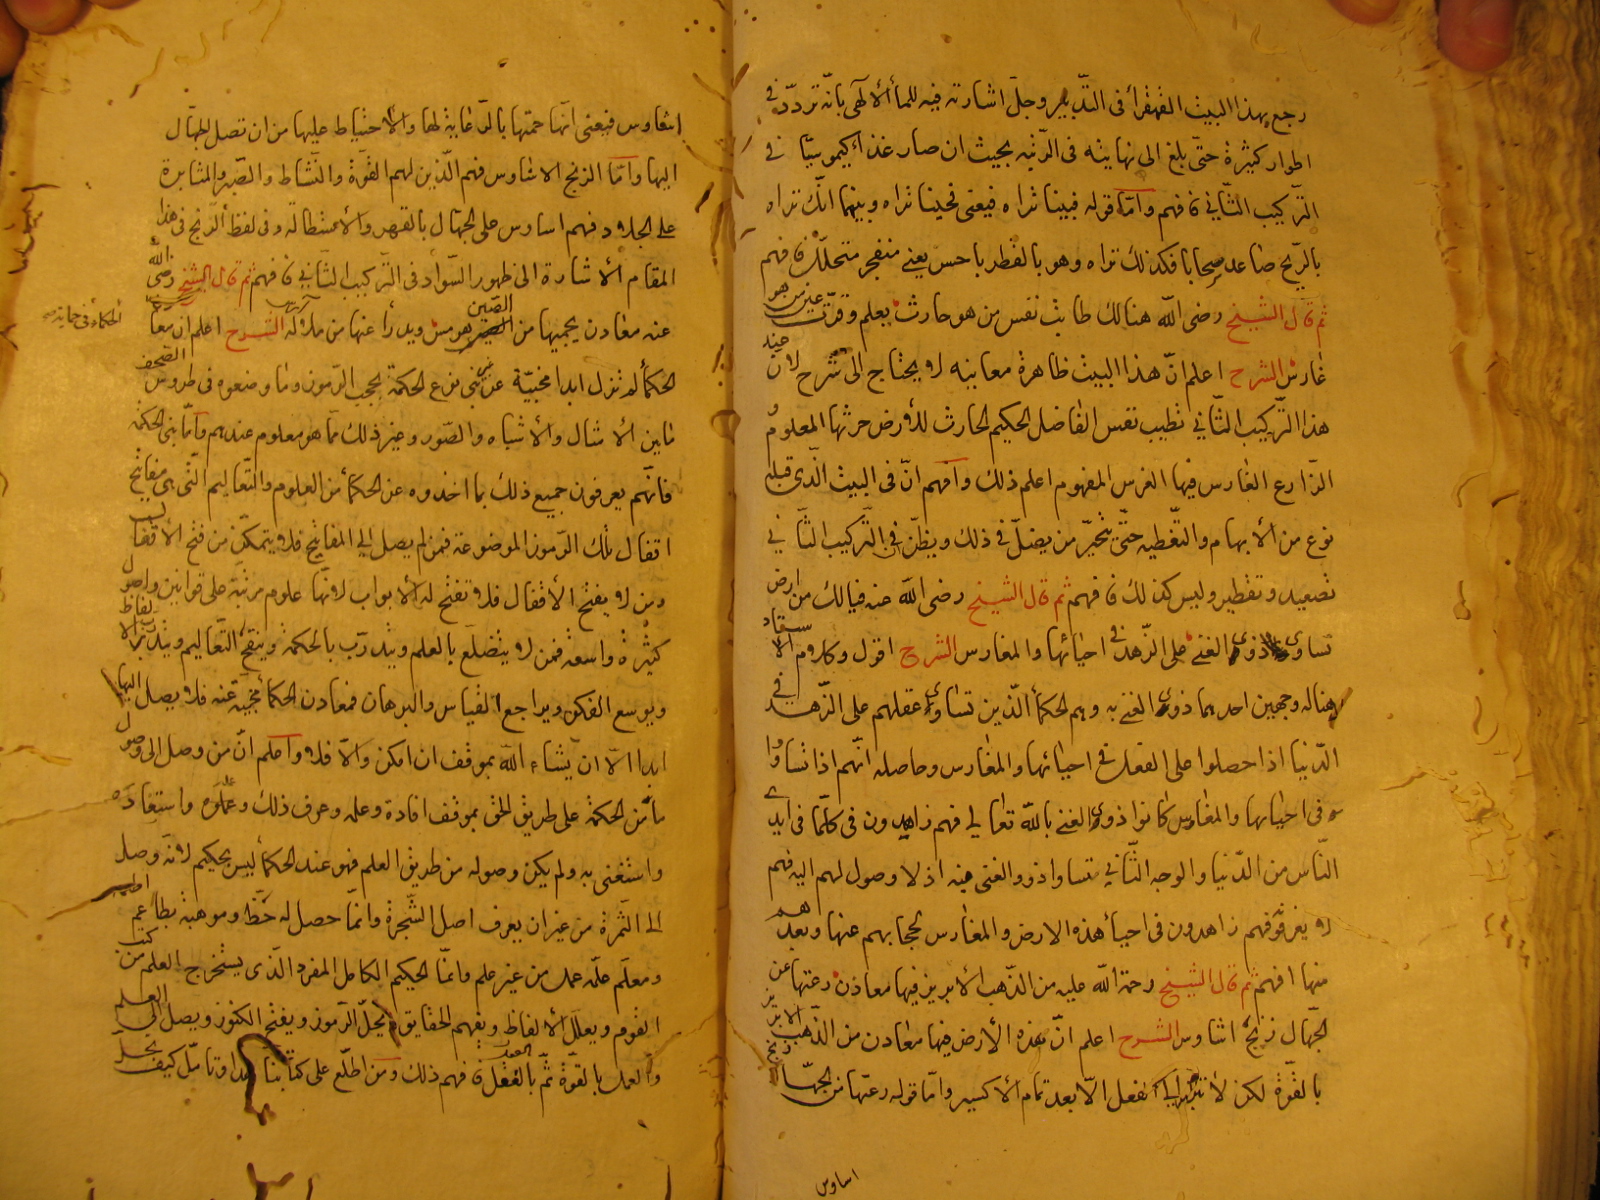 رجع بهذا البيت القهقرأ فى التدبير وجل اشارته فيه للمأ الالهى بانه تردد فى
اطوار كثيرة حتى بلغ الى نهايته فى الرتبه بحيث ان صار غذاء كيموسيا فى
التركيب الثانى فافهم واما قوله فبينا تراه فيعنى فحينا تراه وبينما انك تراه
بالريح صاعد سحابا فكذلك تراه وهو بالقطر باجس يعنى منفجر متحلل فافهم
ثم قال الشيخ رضى الله هنالك طابت نفس من هو حارث يعلم وقرت عين من هو
غارس الشرح اعلم ان هذا البيت ظاهرة معانيه لا يحتاج الى شرح لان عند
هذا التركيب الثانى تطيب نفس الفاضل الحكيم الحارث للارض حرثها المعلوم
الزارع الغارس فيها الغرس المفهوم اعلم ذلك وافهم ان فى البيت الذى قبله
نوع من الابهام والتغطيه حتى يتحير من يضل فى ذلك ويظن فى التركيب الثانى
تصعيد وتقطير وليس كذلك فافهم ثم قال الشيخ رضى الله عنه فيالك من ارض
تساوى ذوى الغنى على الزهد فى احيائها والمغارس الشرح اقول وكلام الاستاد
هنا له وجهين احدهما ذوى الغنى به وهم الحكمأ الذين تساوى عقلهم على الزهد فى
الدنيا اذا حصلوا على الفعل فى احيائها والمغارس وحاصله انهم اذا تساووا
فى احيائها والمغارس كانوا ذوى الغنى بالله تعالى فهم زاهدون فى كلما فى ايدى
الناس من الدنيا والوجه الثانى تساوا ذوو الغنى منه اذ لا وصول لهم اليه فهم
لا يعرفوه فهم زاهدون فى احيأ هذه الارض والمغارس لحجابهم عنها وبعدهم
منها افهم ثم قال الشيخ رحمة الله عليه من الذهب الابريز فيها معادن رعتها عن
الجهال زنج اشاوس الشرح اعلم ان هذه الارض فيها معادن من الذهب الابريز
بالقوة لكن لا تبرز الى الفعل الا بعد تمام الاكسير واما قوله رعتها من الجهال زنج
اساوس
اشاوس فيعنى انها حمتها بالرعاية لها والاحتياط عليها من ان تصل الجهال
اليها واما الزنج الاشاوس فهم الذين لهم القوة والنشاط والصبر والمثابرة
على الجلاد فهم اساوس على الجهال بالقهر والاستطالة وفى لفظ الزنج فى هذا
المقام الاشارة الى ظهور السواد فى التركيب الثانى فافهم ثم قال الشيخ رضى الله
عنه معادن يحميها من الصين هرمس ويدرأ عنها من ملوك الشرح اعلم ان معادن
الحكمأ لم تزل ابدا مخبية عن بنى نوع الحكمة بحجب الرموز وما وضعوه فى طروس الصحف
مابين الامثال والاشباه والصور وغير ذلك مما هو معلوم عندهم واما بنى الحكمة
فانهم يعرفون جميع ذلك بما اخذوه عن الحكمأ من العلوم والتعاليم التى هى مفاتيح
اقفال تلك الرموز الموضوعة فمن لم يصل الى المفاتيح فلا يتمكن من فتح الاقفال
ومن لا يفتح الاقفال فلا تفتح له الابواب لانها علوم مرتبة على قوانين واصول
كثيرة واسعة فمن لا يتضلع بالعلم ويتدرب بالحكمة وينقح التعاليم ويتدبر الالفاظ
ويوسع الفكر ويراجع القياس والبرهان فمعادن الحكمأ مخبية عنه فلا يصل اليها
ابدا الا ان يشاء الله بموقف ان امكن والا فلا واعلم ان من وصل الى وصول
ما من الحكمة على طريق الحق بموقف افادة وعلمه وعرف ذلك وعمله واستفاده
واستغنى به ولم يكن وصوله من طريق العلم فهو عند الحكمأ ليس بحكيم لانه وصل
الى الثمرة من غير ان يعرف اصل الشجرة وانما حصل له حظ وموهبة
ومعلم علمه عمل من غير علم وانما الحكيم الكامل المفرد الذى يستخرج العلم من كتب
القوم ويعلل الالفاظ ويفهم الحقايق ويحل الرموز ويفتح الكنوز ويصل الى العلم
والعمل بالقوة ثم بالفعل فافهم ذلك ومن اطلع على كتابنا هذا وتأمل كيف نحل